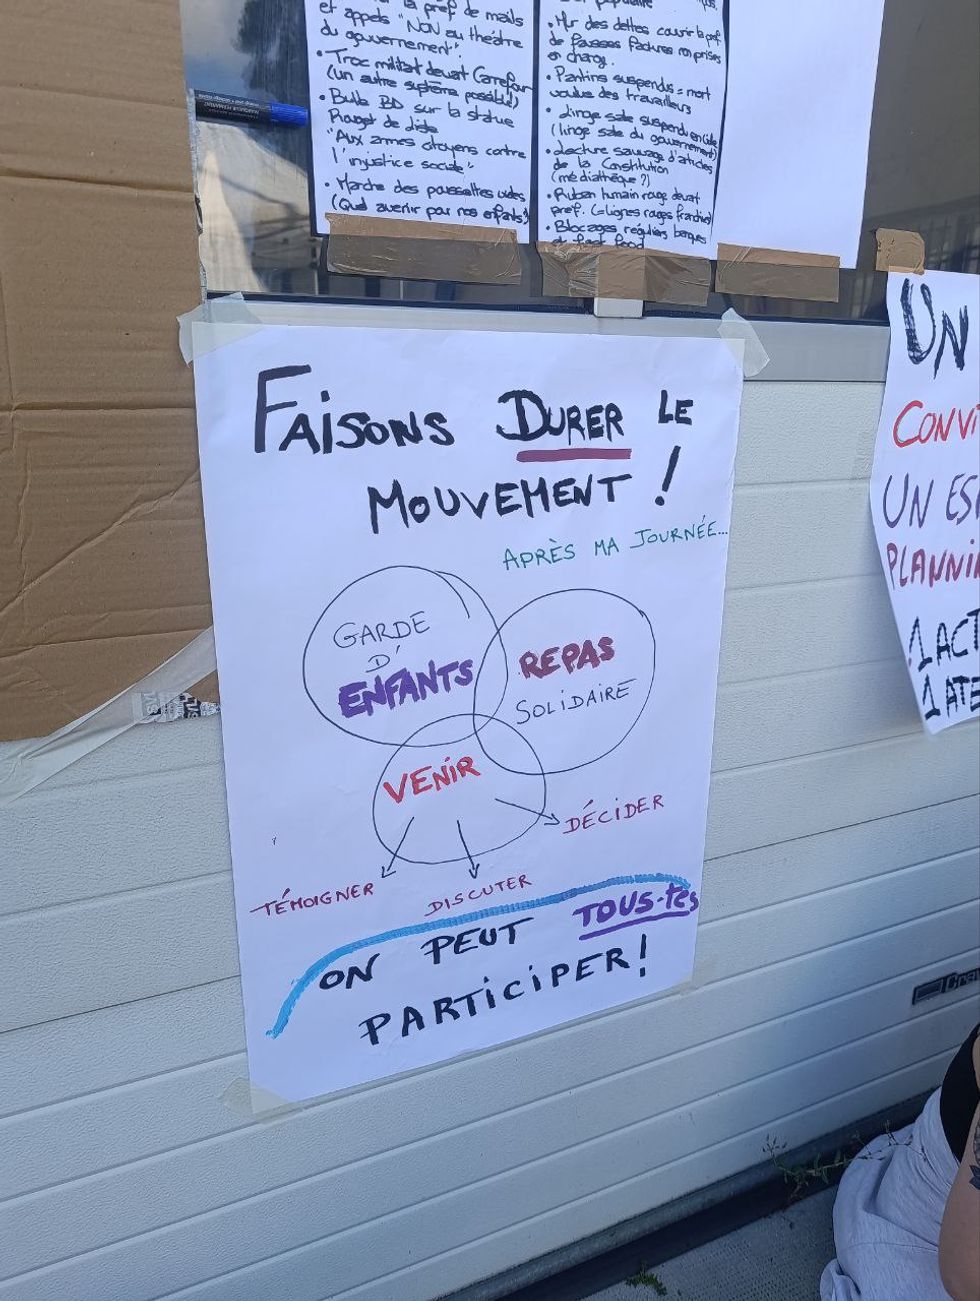 la préf de mails
et appels "NON au théâtre
du gouvernement".
• Troc militant devant Carrefour
(un autre système possible)
• Bulle BD sur la statue
Rouget de Lisle
"Aux armes citoyens contre
l'injustice sociale"
• Marche des poussettes vides
(Quel avenir pour nos enfants)
populaire
• Mur des dettes couvrir la pref
de fausses factures
en charg.
• Pantins suspendus = mort
voulue des travailleurs
• Linge sale suspendu en ville
(linge sale du gouvernement)
• Lecture sauvage d'articles
de la Constitution
(médiathèque ?)
• Ruban humain rouge devant
pref. (=lignes rouges franchies)
• Blocages réguliers banques
et fast food
FAISONS DURER LE
MOUVEMENT !
APRÈS MA JOURNÉE...
GARDE
D'
ENFANTS
REPAS
SOLIDAIRE
VENIR
DÉCIDER
TÉMOIGNER
DISCUTER
ON PEUT TOUS·tes
PARTICIPER !
UN
CONVI
UN ES
PLANNI
1 ACT
1 ATE